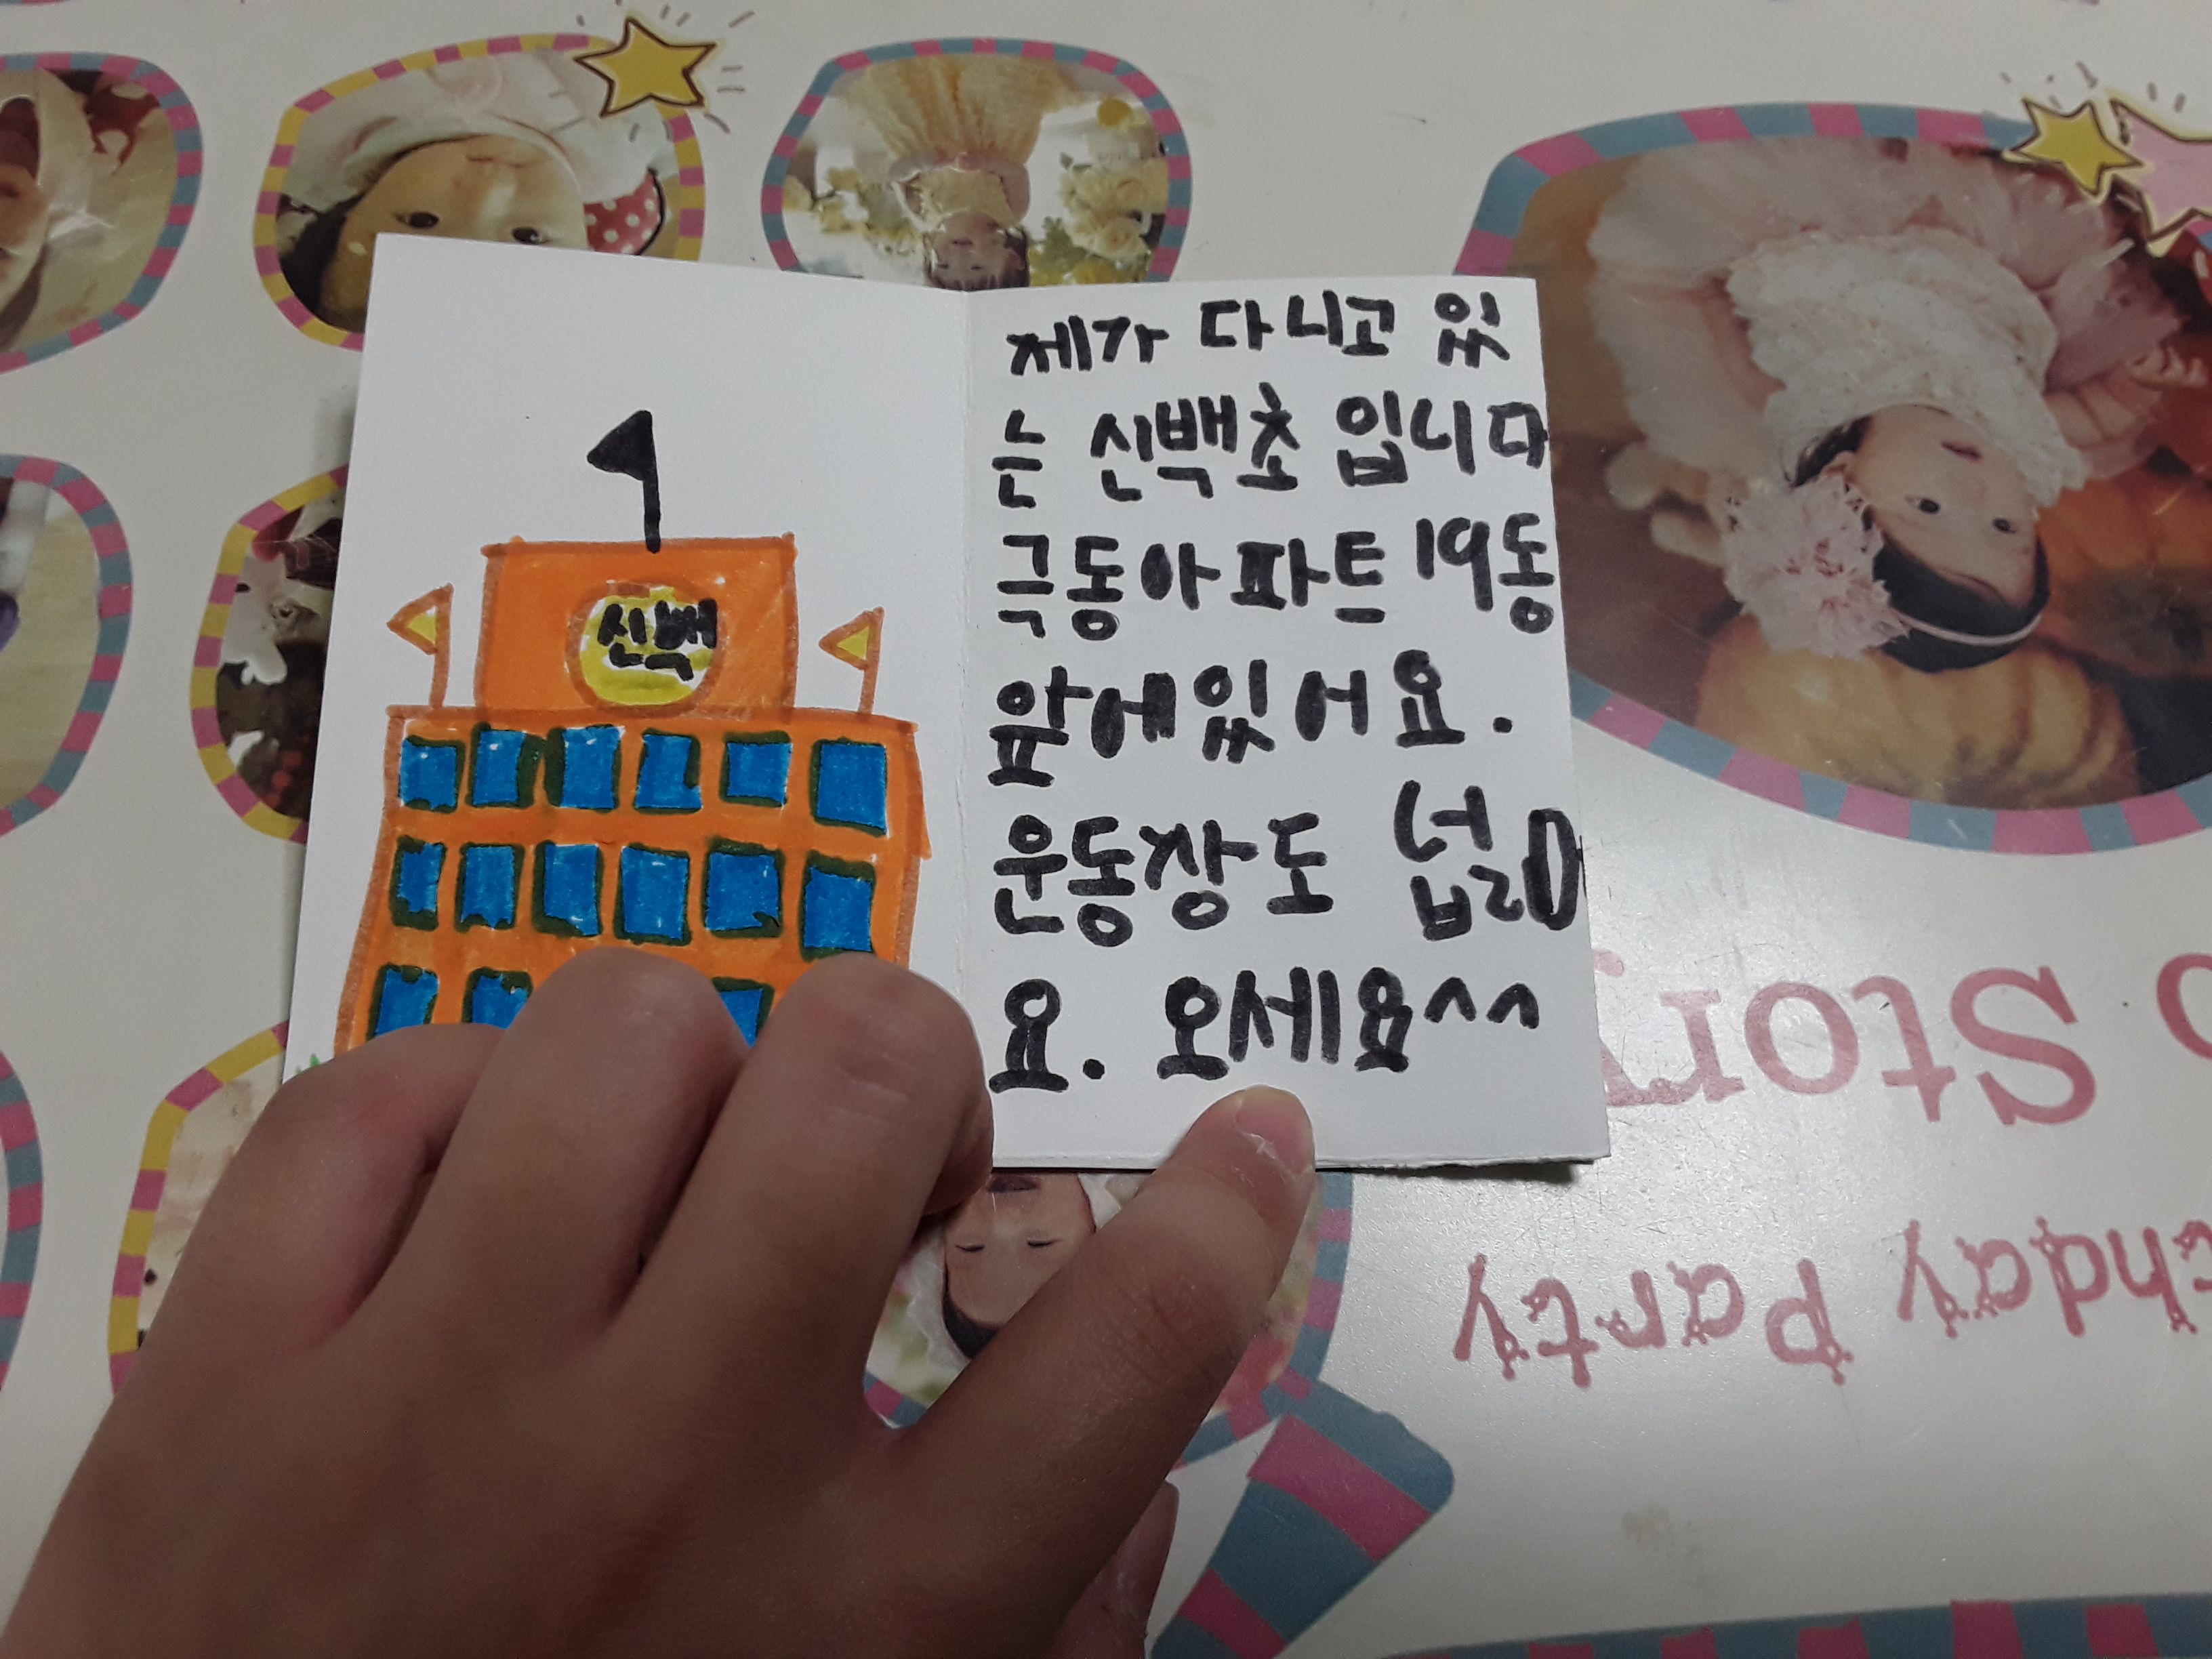 신백
제가 다니고 있
는 신백초 입니다
극동아파트 19동
앞에있어요.
운동장도 넓어
요. 오세요^^
Story
Party